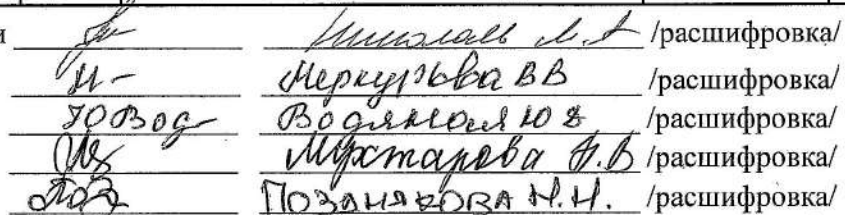 и Николаев Л.А /расшифровка/
М- Меркурьева ВВ /расшифровка/
ЮВод Водяная Ю В /расшифровка/
Мухтарова А.В /расшифровка/
Поз Позднякова Н.Н. /расшифровка/